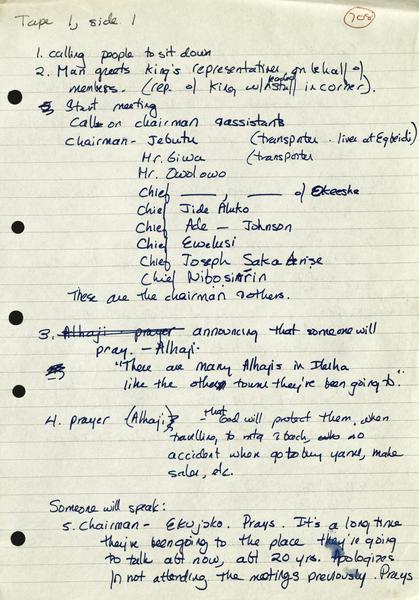 Tape 1, side 1
705
1. calling people to sit down
2. Man greets king's representatives on behalf of
members. (rep. of king w/ staff in corner).
Start meeting
Calls on chairman & assistants
Chairman - Jebutu (transporter - lives at Egbeidi)
Mr. Giwa (transporter
Mr. Owolowo
Chief ____, ____ of Ekeesha
Chief Jide Aluko
Chief Ade - Johnson
Chief Ewelusi
Chief Joseph Saka
Chief Nibosinrin
These are the chairman & others.
3. Alhaji prayer announcing that someone will
pray. - Alhaji.
"There are many Alhajis in Ilesha
like the other towns they've been going to."
4. prayer (Alhaji) that God will protect them, when
travelling to mtg & back, no
accident when go to buy yams, make
sales, etc.
Someone will speak:
5. Chairman - Ekujoko. Prays. It's a long time
they've been going to the place they're going
to talk abt now, abt 20 yrs. Apologizes
for not attending the meetings previously. Prays